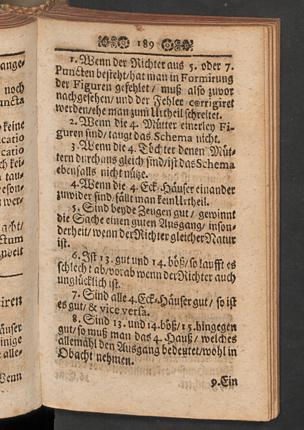 189
1. Wenn der Richter aus 5. oder 7.
Puncten besteht/hat man in Formirung
der Figuren gefehlet/ muß also zuvor
nachgesehen/ und der Fehler corrigiret
werden/ehe man zum Urtheil schreitet.
2. Wenn die 4. Mütter einerley Fi-
guren sind/ taugt das Schema nicht.
3. Wenn die 4. Töchter denen Müt-
tern durchaus gleich sind/ist das Schema
ebenfalls nicht nütze.
4. Wenn die 4 Eck-Häuser einander
zuwider sind/fällt man kein Urtheil.
5. Sind beyde Zeugen gut/ gewinnt
die Sache einen guten Ausgang/ inson-
derheit/ wenn der Richter gleicher Natur
ist.
6. Ist 13. gut und 14. böß/ so laufft es
schlecht ab/vorab wenn der Richter auch
unglücklich ist.
7. Sind alle 4. Eck-Häuser gut/ so ist
es gut/ & vice versa.
8. Sind 13. und 14. böß/ 15. hingegen
gut/ so muß man das 4. Hauß/ welches
allemahl den Ausgang bedeutet/wohl in
Obacht nehmen.
9. Ein